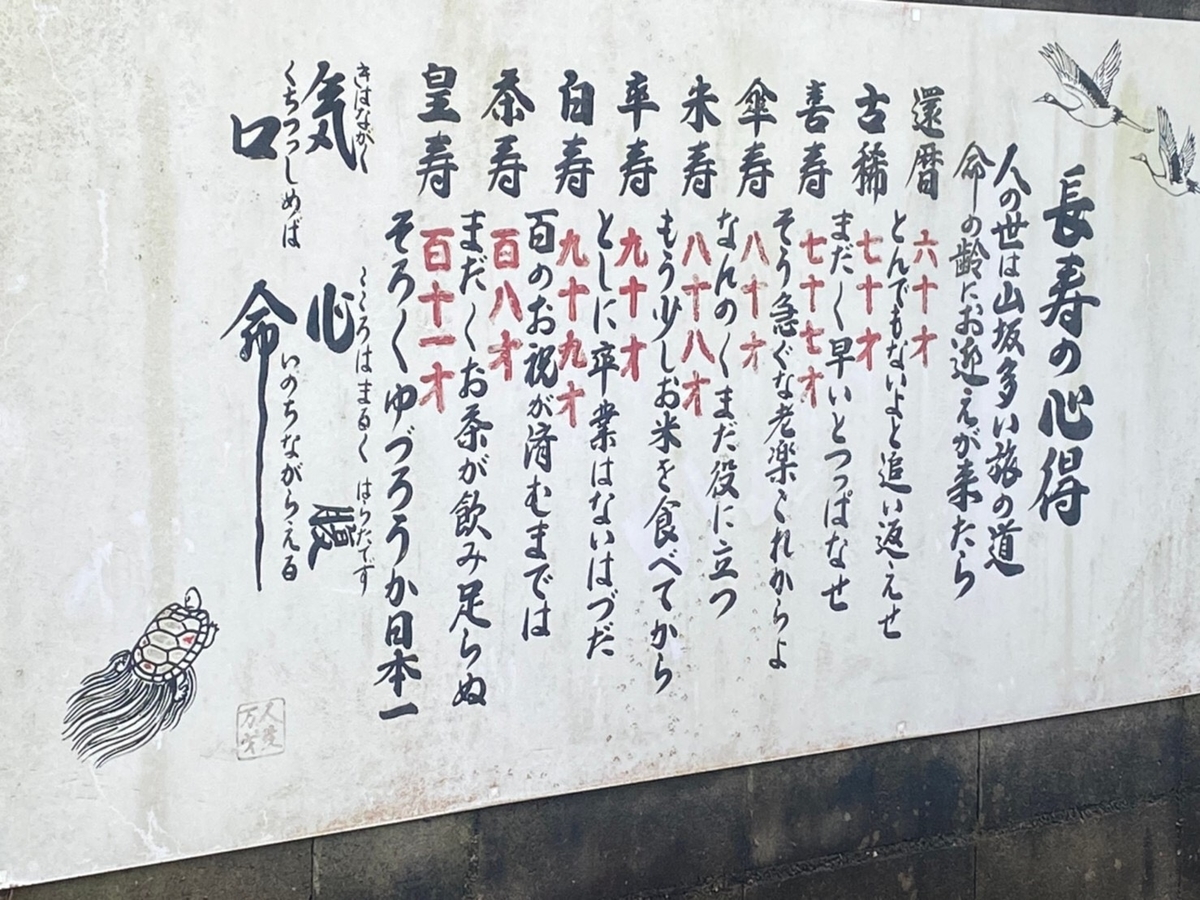 長寿の心得
人の世は山坂多い旅の道
命の齢にお迎えが来たら
還暦 六十才
とんでもないよと追い返えせ
古稀 七十才
まだ〱早いとつっぱなせ
喜寿 七十七才
そう急ぐな老楽これからよ
傘寿 八十才
なんの〱まだ役に立つ
米寿 八十八才
もう少しお米を食べてから
卒寿 九十才
としに卒業はないはづだ
白寿 九十九才
百のお祝が済むまでは
茶寿 百八才
まだ〱お茶が飲み足らぬ
皇寿 百十一才
そろ〱ゆづろうか日本一
きはながく こころはまるく はらたてず
気 心 腹
くちつつしめば いのちながらえる
口 命